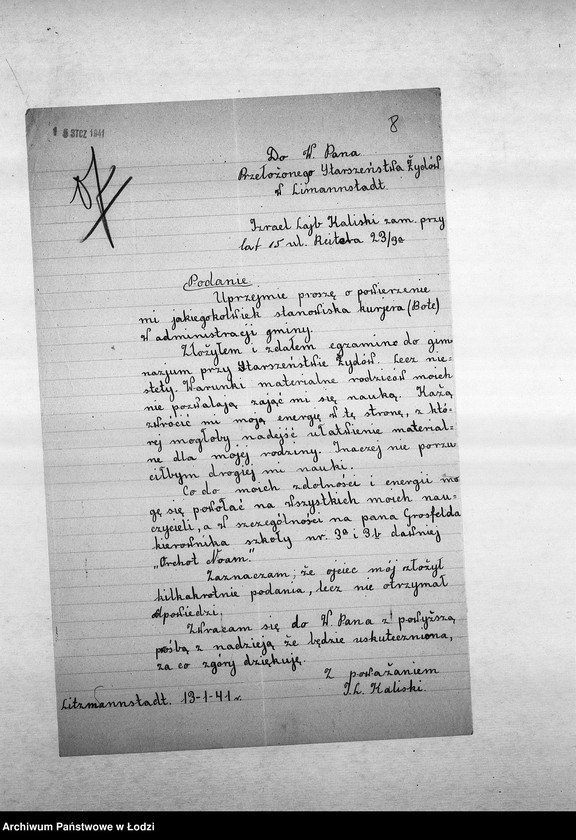 1 8 STCZ 1941
8
Do W. Pana
Przełożonego Starszeństwa Żydów
w Limannstadt.
Izrael Lajb Kaliski zam. przy
lat 15 ul. Reitera 23/9a
Podanie.
Uprzejmie proszę o powierzenie
mi jakiegokolwiek stanowiska kurjera (Bote)
w administracji gminy.
Złożyłem i zdałem egzamin do gim
nazjum przy Starszeństwie Żydów. Lecz nie-
stety. Warunki materialne rodziców moich
nie pozwalają zająć mi się nauką. Każą
zwrócić mi moją energię w tę stronę, z któ-
rej mogłoby nadejść ułatwienie material-
ne dla mojej rodziny. Inaczej nie porzu
ciłbym drogiej mi nauki.
Co do moich zdolności i energii mo
gę się powołać na wszystkich moich nau-
czycieli, a w szczególności na pana Grosfelda
kierownika szkoły nr. 3a i 3b dawniej
„Orchot Noam."
Zaznaczam, że ojciec mój złożył
kilkakrotnie podania, lecz nie otrzymał
odpowiedzi.
Zwracam się do W. Pana z powyższą
prośbą z nadzieją że będzie uskuteczniona,
za co zgóry dziękuję.
Z poważaniem
I. L. Kaliski.
Litzmannstadt. 13-1-41 r.
Archiwum Państwowe w Łodzi